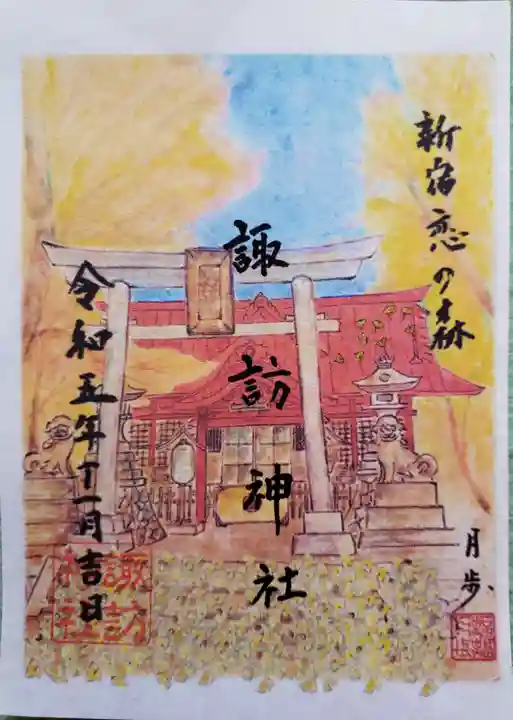 新宿恋の森
諏訪神社
令和五年十一月吉日
月歩
諏訪
神社